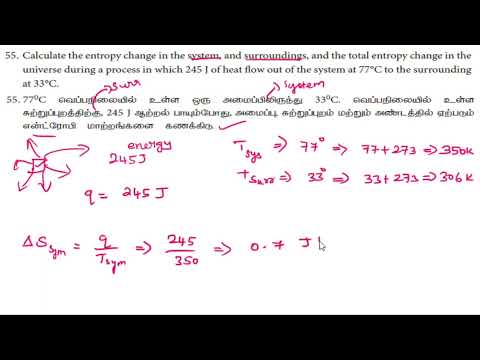 55. Calculate the entropy change in the system, and surroundings, and the total entropy change in the
universe during a process in which 245 J of heat flow out of the system at 77°C to the surrounding
at 33°C.
Surr
System
55. 77⁰C வெப்பநிலையில் உள்ள ஒரு அமைப்பிலிருந்து 33⁰C. வெப்பநிலையில் உள்ள
சுற்றுப்புறத்திற்கு, 245 J ஆற்றல் பாயும்போது, அமைப்பு, சுற்றுப்புறம் மற்றும் அண்டத்தில் ஏற்படும்
என்ட்ரோபி மாற்றங்களை கணக்கிடு
energy
245J
q = 245 J
Tsys ⇒ 77° ⇒ 77+273 ⇒ 350k
Tsurr ⇒ 33° ⇒ 33+273 ⇒ 306k
ΔSsym = q/Tsym ⇒ 245/350 ⇒ 0.7 J